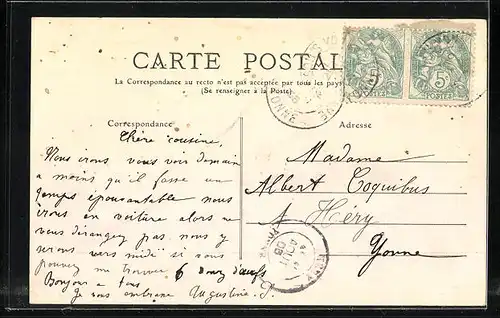 CARTE POSTALE
La Correspondance au recto n'est pas acceptée par tous les pays
(Se renseigner à la Poste.)
Correspondance
Chère cousine,
Nous irons vous voir demain
a moins qu'il fasse un
temps épouvantable nous
irons en voiture alors ne
vous dérangez pas. nous y
serons vers midi si vous
pouvez me trouver 6 douz d'œufs
Bonjour a tous
Je vous embrasse Augustine. G.
Adresse
Madame
Albert Coquibus
A Héry
Yonne
5c
POSTES
YONNE
08